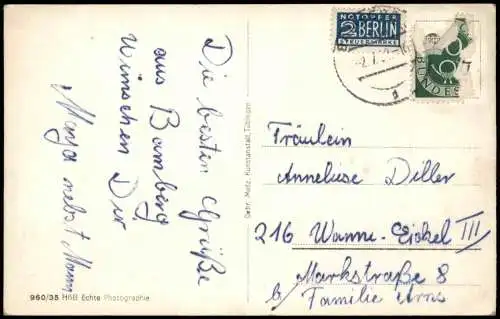 NOTOPFER
2 BERLIN
STEUERMARKE
BUNDES
Die besten Grüße
aus Bamberg
wünschen Dir
Maya nebst Mann
Gebr. Metz, Kunstanstalt, Tübingen
Fräulein
Anneliese Diller
216 Wanne-Eickel III
Markstraße 8
b/ Familie Arns
960/35 H&B Echte Photographie